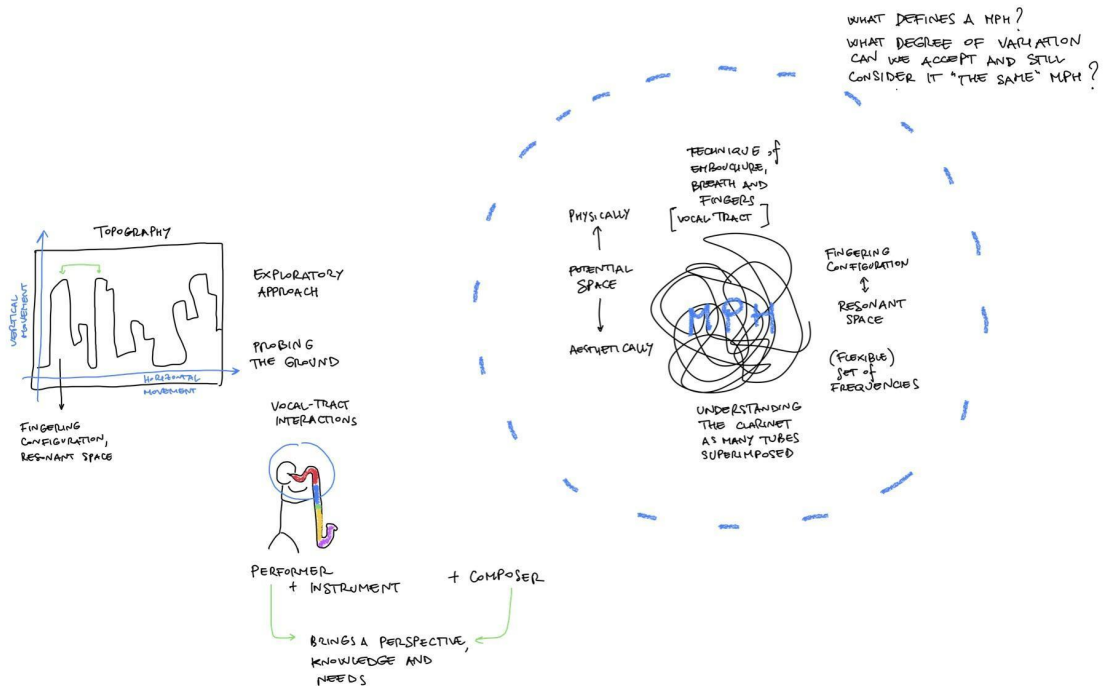 WHAT DEFINES A MPH?
WHAT DEGREE OF VARIATION
CAN WE ACCEPT AND STILL
CONSIDER IT "THE SAME" MPH?
TOPOGRAPHY
VERTICAL
MOVEMENT
HORIZONTAL
MOVEMENT
EXPLORATORY
APPROACH
PROBING
THE GROUND
FINGERING
CONFIGURATION,
RESONANT SPACE
VOCAL-TRACT
INTERACTIONS
PERFORMER
+ INSTRUMENT
+ COMPOSER
BRINGS A PERSPECTIVE,
KNOWLEDGE AND
NEEDS
TECHNIQUE of
EMBOUCHURE,
BREATH AND
FINGERS
[VOCAL TRACT]
PHYSICALLY
POTENTIAL
SPACE
AESTHETICALLY
MPH
FINGERING
CONFIGURATION
RESONANT
SPACE
(FLEXIBLE)
SET of
FREQUENCIES
UNDERSTANDING
THE CLARINET
AS MANY TUBES
SUPERIMPOSED